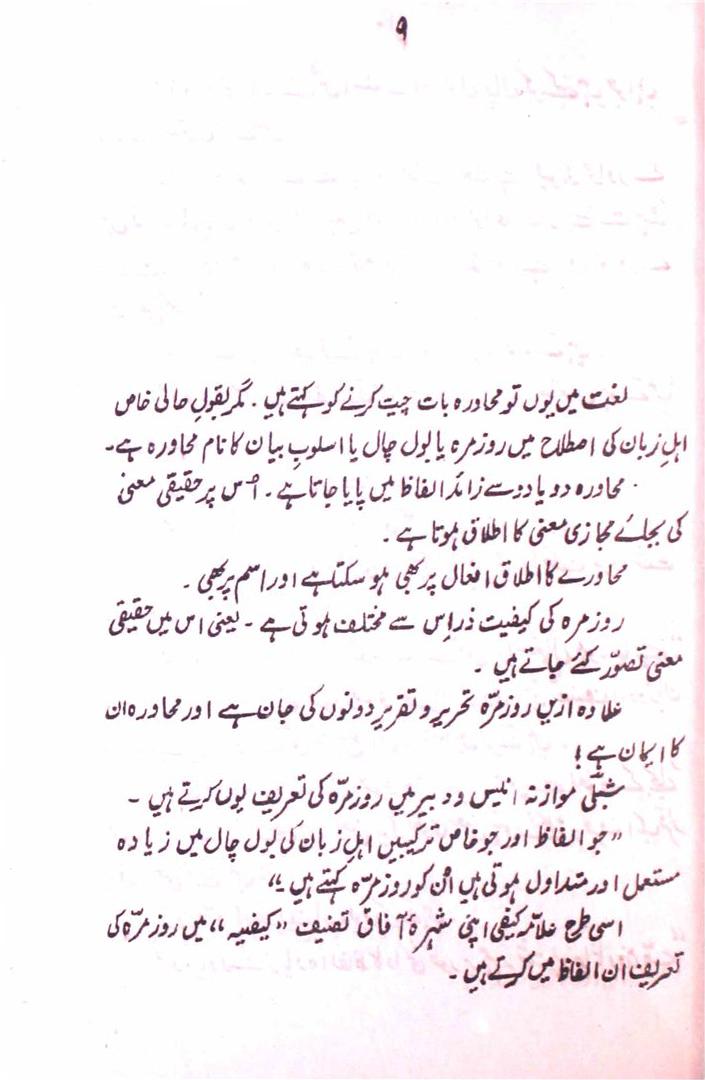 ۹
لغت میں یوں تو محاورہ بات چیت کرنے کو کہتے ہیں۔ مگر بقولِ حالی خاص
اہلِ زبان کی اصطلاح میں روزمرہ یا بول چال یا اسلوبِ بیان کا نام محاورہ ہے۔
محاورہ دو یا دو سے زائد الفاظ میں پایا جاتا ہے۔ اُس پر حقیقی معنی
کی بجائے مجازی معنی کا اطلاق ہوتا ہے۔
محاورے کا اطلاق افعال پر بھی ہو سکتا ہے اور اسم پر بھی۔
روزمرہ کی کیفیت ذرا اِس سے مختلف ہوتی ہے۔ یعنی اس میں حقیقی
معنی تصوّر کئے جاتے ہیں۔
علاوہ ازیں روزمرّہ تحریر و تقریر دونوں کی جان ہے اور محاورہ ان
کا ایمان ہے!
شبلّی موازنہ انیس و دبیر میں روزمرّہ کی تعریف یوں کرتے ہیں۔
”جو الفاظ اور جو خاص ترکیبیں اہلِ زبان کی بول چال میں زیادہ
مستعمل اور متداول ہوتی ہیں اُن کو روزمرّہ کہتے ہیں۔“
اسی طرح علاّمہ کیفی اپنی شہرۂ آفاق تصنیف ”کیفیہ“ میں روزمرّہ کی
تعریف ان الفاظ میں کرتے ہیں۔